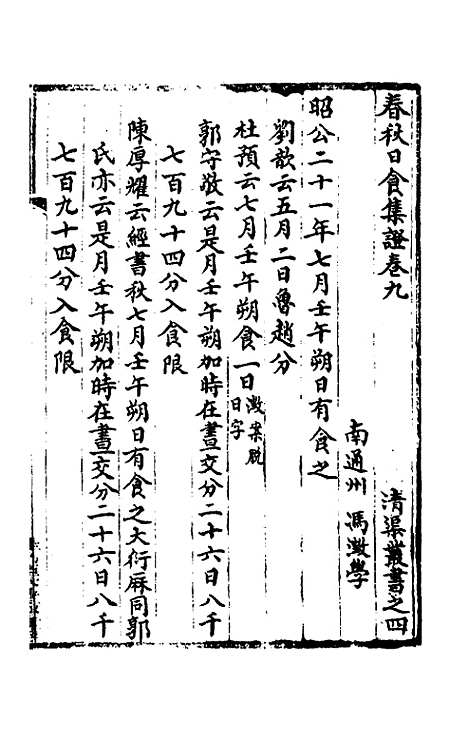 春秋日食集證卷九　清渠叢書之四
南通州　馮澂學
昭公二十一年七月壬午朔日有食之
劉歆云五月二日魯趙分
杜預云七月壬午朔食一日澂案脫日字
郭守敬云是月壬午朔加時在晝交分二十六日八千
七百九十四分入食限
陳厚耀云經書秋七月壬午朔日有食之大衍厤同郭
氏亦云是月壬午朔加時在晝交分二十六日八千
七百九十四分入食限